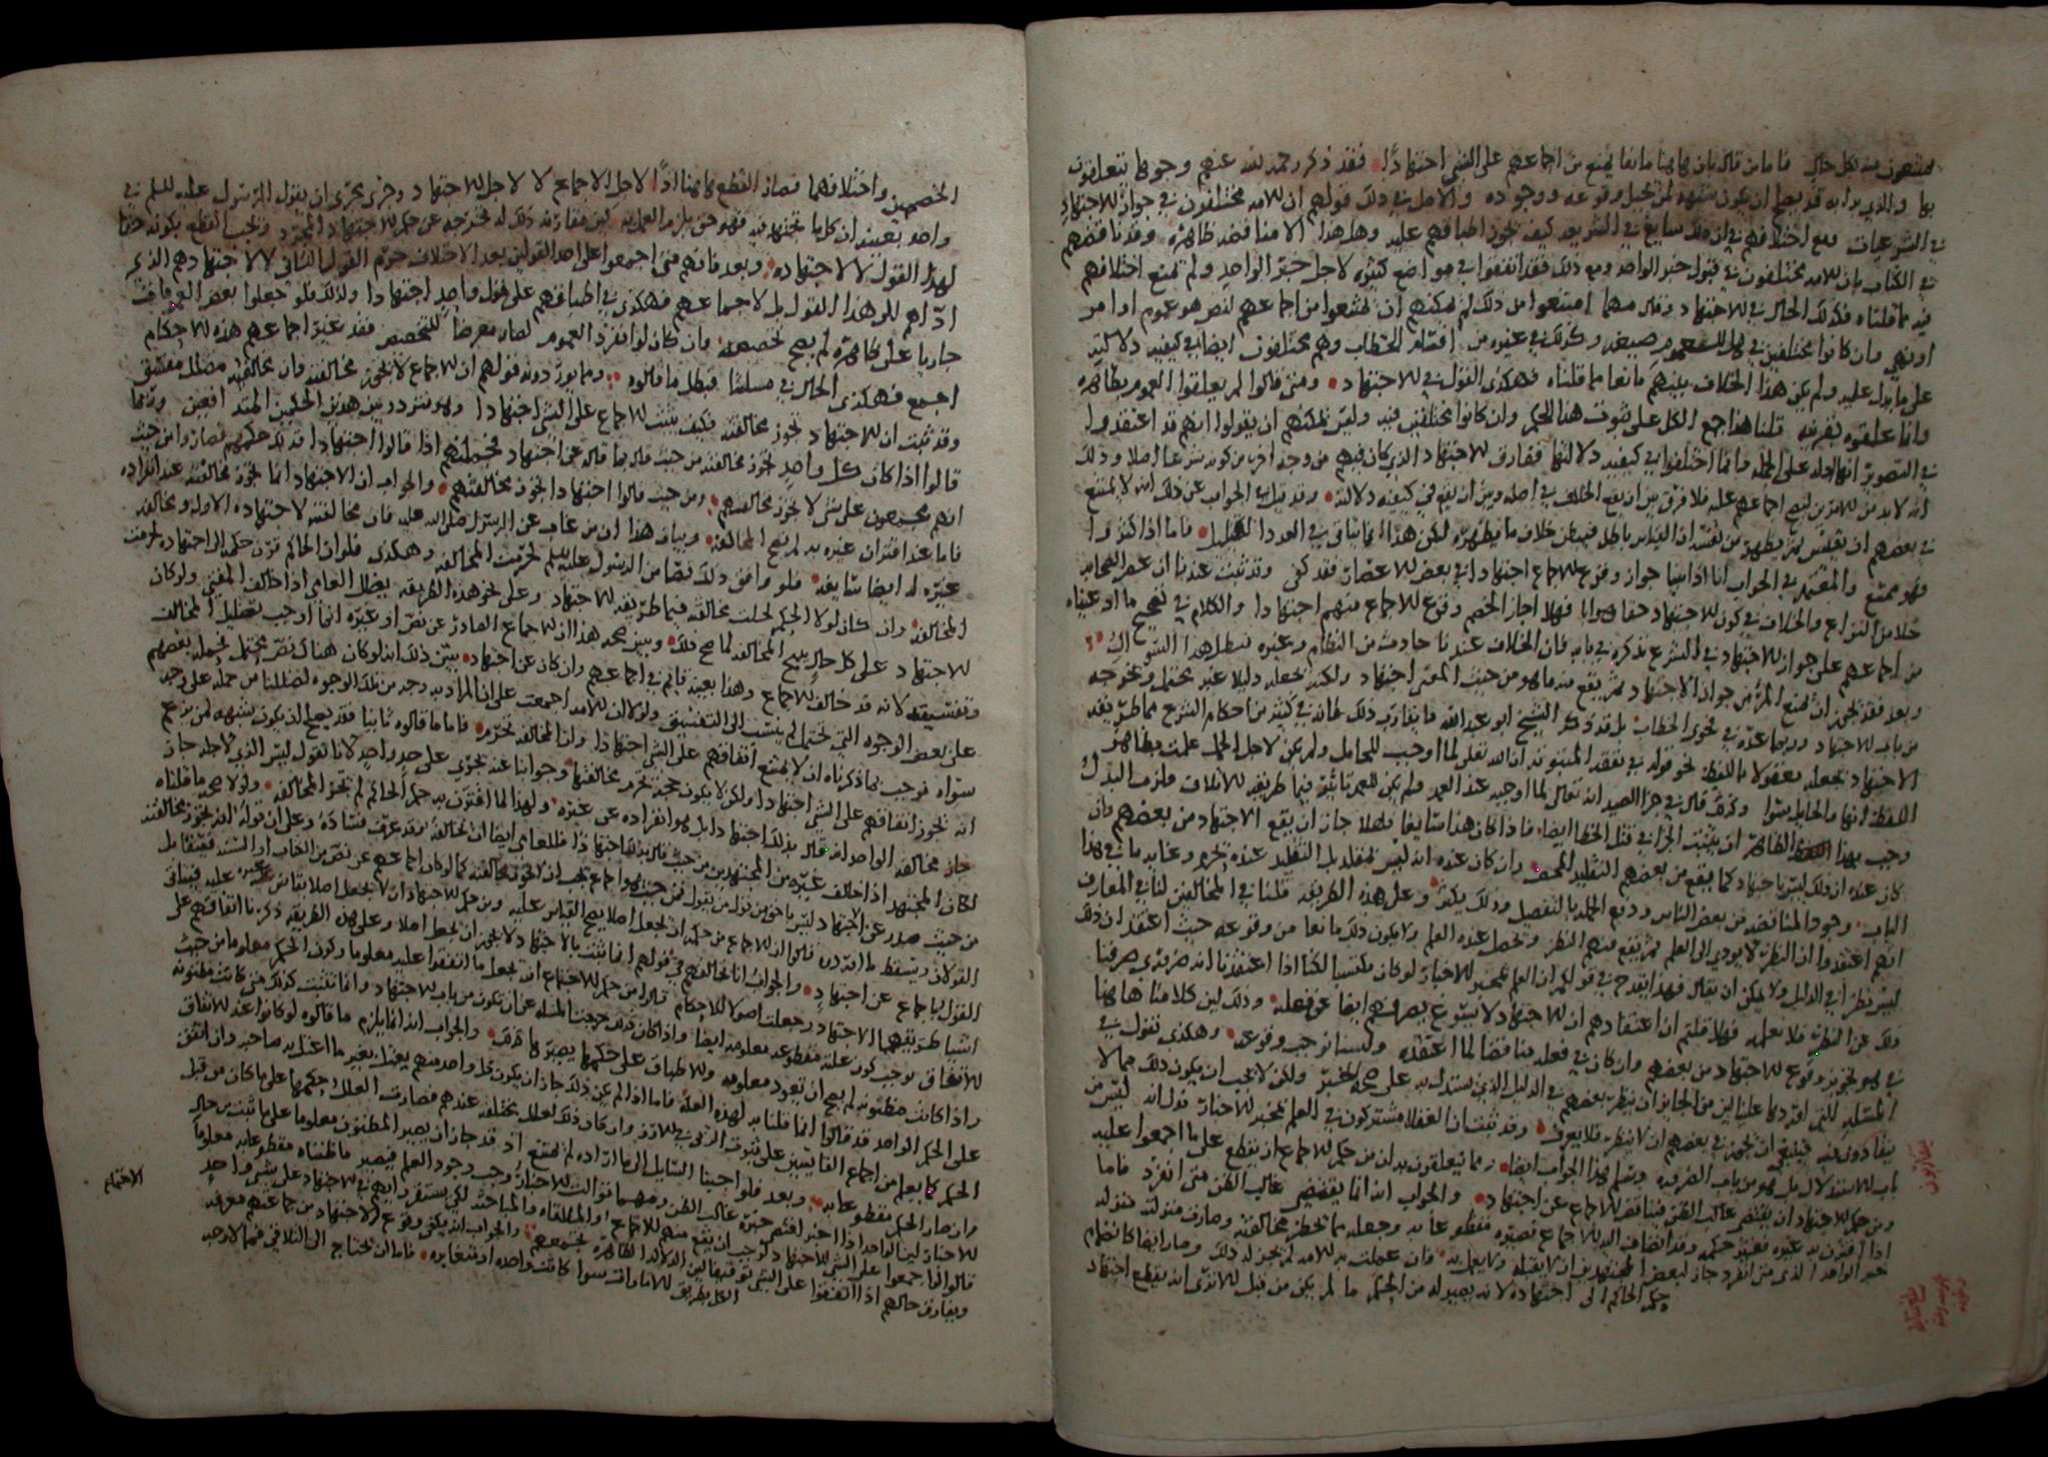 ممتنعون منه بكل حال فاما من قال بان هاهنا مانعا يمنع من اجماعهم على الشي اجتهادا فقد ذكر رحمه الله عنهم وجوها تتعلقون
بها والذي بدا به قد يصح ان يكون شبهه لمن يحيل وقوعه ووجوده والاصل في ذلك قولهم ان الامه مختلفون في جواز الاجتهاد
في الشرعيات ومع اختلافهم في ان ذلك سايغ في الشريعه كيف يجوز اطباقهم عليه وهل هذا الا مناقضه ظاهره وقد ناقضهم
في الكتاب بان الامه مختلفون في قبول خبر الواحد ومع ذلك فقد اتفقوا في مواضع كثيره لاجل خبر الواحد ولم يمنع اختلافهم
فيه مما قلناه فكذلك الحال في الاجتهاد وقال مهما امتنعوا من ذلك لم يمكنهم ان يمتنعوا من اجماعهم لنص هو عموم او امر
او نهي وان كانوا مختلفين في هل للعموم صيغه وكذلك في غيره من اقسام الخطاب وهم مختلفون ايضا في كيفيه دلالته
على ما يدل عليه ولم يكن هذا الخلاف بينهم مانعا مما قلناه فهكذى القول في الاجتهاد ومتى قالوا لم يعلقوا العموم بظاهره
وانما علقوه بقرينه قلنا هذا جمع الكل على ثبوت هذا الحكم وان كانوا مختلفين فيه وليس يمكنهم ان يقولوا انهم قد اعتقدوا
في النصوص انها ادله على الجمله وانما اختلفوا في كيفيه دلالتها ففارق الاجتهاد الذي كان فيهم من وجه اخر من كونه شرعا اصلا وذلك
انه لا بد من الامرين لصح اجماعهم عليه فلا فرق بين ان يقع الخلاف في اصله وبين ان يقع في كيفيه دلاله وقد قيل في الجواب عن ذلك انه لا يمتنع
في بعضهم ان يقيس ثم يظهر من نفسه ان القياس باطل فيبطن خلاف ما يظهره لكن هذا انما يتاتى في العدد القليل فاما اذا كثروا
فهو ممتنع والمعتمد في الجواب انا اذا بينا جواز وقوع الاجماع اجتهادا في بعض الاعصار فقد كفى وقد ثبت عندنا ان عصر الصحابه
خلا من النزاع والخلاف في كون الاجتهاد حقا صوابا فهلا اجاز الخصم وقوع الاجماع منهم اجتهادا والكلام في تصحيح ما ادعيناه
من اجماعهم على جواز الاجتهاد في الشرع نذكره في بابه فان الخلاف عندنا حادث من النظام وغيره فبطل هذا السؤال
وبعد فقد يجوز ان يمنع المرء من جواز الاجتهاد ثم يقع منه ما هو من حيث المعنى اجتهاد ولكنه يجعله دليلا غير محتمل ويخرجه
من باب الاجتهاد وربما عده في فحوى الخطاب بل قد ذكر الشيخ ابو عبدالله ما يقارب ذلك لما انه في كثير من احكام الشرع مما طريقه
الاجتهاد يجعله معقولا باللفظ نحو قوله في نفقه المبتوته ان الله تعالى لما اوجب للحامل ولم يكن لاجل الحمل علمت بظاهر
اللفظ انها والحايل سوا وكذلك قال في جزا الصيد ان الله تعالى لما اوجبه عند العمد ولم يكن للعمد تاثير فيما طريقه الاتلاف فلزمت البدل
وجب بهذا الظاهر ان يثبت الجزا في قتل الخطا ايضا فاذا كان هذا سايغا فهلا جاز ان يقع الاجتهاد من بعضهم وان
كان عنده ان ذلك ليس باجتهاد كما يقع من بعضهم التقليد المحض وان كان عنده انه ليس بتقليد بل التقليد عنده محرم وغايه ما في هذا
الباب وجود المناقضه من بعض الناس ودفع الجمله بالتفصيل وذلك يكثر وعلى هذه الطريقه قلنا في المخالفين لنا في المعارف
انهم اعتقدوا ان النظر لا يودي الى العلم ثم يقع منهم النظر ويحصل عنده العلم ولا يكون ذلك مانعا من وقوعه حيث اعتقد ان ذلك
ليس نظرا في الدليل ولا يمكن ان يقال فهذا يقدح في قولكم ان العلم بمخبر الاخبار لو كان مكتسبا لكنا اذا اعتقدنا انه ضروري صرفنا
ذلك عن النظر فلا نعلمه فهلا قلتم ان اعتقادهم ان الاجتهاد لا يسوغ يصرفهم ايضا عن فعله وذلك لان كلامنا هاهنا
في هو تجويز وقوع الاجتهاد من بعضهم وان كان في فعله مناقضا لما اعتقده ولسنا نوجب وقوعه وهكذى نقول في
المسئله التي اوردها علينا لان من الجايز ان ينظر بعضهم في الدليل الذي يستدل به على صحه الخبر ولكن لا يجب ان يكون ذلك مما لا
يفارقون فيه فيلزم ان يجوز في بعضهم ان لا ينظر فلا يعرف وقد ثبت ان العقلا مشتركون في العلم بمخبر الاخبار فدل انه ليس من
باب الاستدلال بل هو من باب الضروره وتم بهذا الجواب ايضا ومما يتعلقون به ان من حكم الاجماع ان يقطع على ما اجمعوا عليه
ومن حكم الاجتهاد ان يقتضي غالب الظن فيناقض الاجماع عن اجتهاد والجواب انه انما يقتضي غالب الظن متى انفرد فاما
اذا اقترن به غيره تغير حكمه وقد انضاف اليه الاجماع فصيره مقطوعا به وجعله مما يحظر مخالفته وصارت منزلته منزله
خبر الواحد الذي متى انفرد جاز لبعض المجتهدين ان لا يقبله ولا يعمل به فان عملت به الامه لم يجز له ذلك وصار ايضا كانضمام
حكم الحاكم الى اجتهاده لانه يصير له من الحكم ما لم يكن من قبل الا ترى انه يقطع اجتهاد
الخصمين واختلافهما فصار القطع هاهنا اذا لاجل الاجماع لا لاجل الاجتهاد وجرى مجرى ان يقول الرسول عليه السلم في
واحد بعينه ان كل ما يجتهد فيه فهو حق يلزم العمل به لان مقارنه ذلك له تخرجه عن حكم الاجتهاد المجرد ويجب القطع بكونه حقا
لهذا القول لا لاجتهاده وبعد فانهم متى اجمعوا على احد القولين بعد الاختلاف حرم القول الثاني لا لاجتهادهم الذي
اداهم الى هذا القول بل لاجماعهم فهكذى في اطباقهم على قول واحد اجتهادا ولذلك قلنا لو جعلوا بعض العمومات
جاريا على ظاهره لم يصح تخصيصه وان كان لو انفرد العموم لصار معرضا للتخصيص فقد غير اجماعهم هذه الاحكام
اجمع فهكذى الحال في مسئلتنا فبطل ما قالوه ومما يوردونه قولهم ان الاجماع لا تجوز مخالفته وان مخالفه مضلل مفسق
وقد ثبت ان الاجتهاد تجوز مخالفته فكيف يثبت الاجماع على الشي اجتهادا وهو متردد بين هذين الحكمين المتدافعين وربما
قالوا اذا كان كل واحد تجوز مخالفته من حيث قال بما قاله عن اجتهاد فجملتهم اذا قالوا اجتهادا فذلك حكمهم فصاروا من حيث
انهم مجتمعون على شي لا تجوز مخالفتهم ومن حيث قالوا اجتهادا تجوز مخالفتهم والجواب ان الاجتهاد انما تجوز مخالفته عند انفراده
فاما عند اقتران غيره به لم تصح المخالفه وبيان هذا ان من غاب عن الرسول صلى الله عليه فان مخالفته لاجتهاده الاول ومخالفه
غيره له ايضا سايغه فلو وافق ذلك نصا من الرسول عليه السلم لحرمت المخالفه وهكذى فلو ان الحاكم قرن حكمه الى اجتهاده لحرمت
المخالفه وان كان لولا الحكم لحلت مخالفته فيما طريقه الاجتهاد وعلى نحو هذه الطريقه يضلل العامي اذا خالف المفتي ولو كان
الاجتهاد على كل حال يبيح المخالفه لما صح ذلك ويبين صحه هذا ان الاجماع الصادر عن نص او غيره انما اوجب تضليل المخالف
وتفسيقه لانه قد خالف الاجماع وهذا بعينه قايم في اجماعهم وان كان عن اجتهاد يبين ذلك انه لو كان هناك نص محتمل فحمله بعضهم
على بعض الوجوه التي تحتمل لم ينسب الى التفسيق ولو لا ان الامه اجمعت على ان المراد به وجه من تلك الوجوه لضللنا من حمله على وجه
سواه فوجب بما ذكرناه ان لا يمتنع اتفاقهم على الشي اجتهادا وان المخالفه تحرم فاما ما قالوه ثانيا فقد يصح ان يكون شبهه لمن يزعم
انه يجوز اتفاقهم على الشي اجتهادا ولكن لا يكون حجه تحرم مخالفتها وجوابنا عنه يجري على حد واحد لانا نقول ليس الذي لاجله جاز
جاز مخالفه الواحد انه قال بذلك اجتهادا بل هو انفراده عن غيره ولهذا لما اقترن به حكم الحاكم لم تجز المخالفه ولولا صحه ما قلناه
لكان المجتهد اذا خالف غيره من المجتهدين من حيث قال بذلك اجتهادا فللعامي ايضا ان يخالفه وقد عرف فساده وعلى ان قوله انه تجوز مخالفته
من حيث صدر عن اجتهاد ليس باحق من قول من يقول فمن حيث هو اجماع يجب ان لا تجوز مخالفته كما لو كان اجماعهم عن نص من الكتاب او السنه فيتقابل
القولان ويسقط ما اوردوه قالوا ان الاجماع من حكمه ان يجعل اصلا يصح القياس عليه ومن حكم الاجتهاد ان لا يجعل اصلا يقاس غيره عليه فيتنافى
القول باجماع عن اجتهاد والجواب انا نخالفهم في قولهم ان ما ثبت بالاجتهاد لا يجوز ان يجعل اصلا وعلى هذه الطريقه ذكرنا اتفاقهم على
اشيا طريقها الاجتهاد وجعلت اصولا للاحكام قالوا من حكم الاجماع ان يجعل ما اتفقوا عليه معلوما وكون الحكم معلوما من حيث
الاتفاق يوجب كون علته مقطوعه معلومه ايضا واذا كان ذلك خرجت المسئله عن ان تكون من باب الاجتهاد وانما تثبت كذلك متى كانت مظنونه
واذا كانت مظنونه لم يصح ان تعود معلومه والاطباق على حكمها يصيرها كذلك والجواب انه انما يلزم ما قالوه لو كانوا عند الاتفاق
على الحكم الواحد قد قالوا انما قلنا به لهذه العله فاما اذا لم يكن ذلك جاز ان يكون كل واحد منهم يعتل بغير ما اعتل به صاحبه وان اتفق
الحكم كما يعلم من اجماع القايسين على ثبوت الربى في الارز وان كان ذلك لعلل مختلفه عندهم فصارت العلل وحكمها على ما كان من قبل
وان صار الحكم مقطوعا به وبعد فلو اجبنا السايل الى ما اراده لم يمتنع اذ قد جاز ان يصير المظنون معلوما على ما ثبت من حال
الاخبار لان الواحد اذا اخبر اقتضى خبره غالب الظن ومهما توالت الاخبار وجب وجود العلم فيصير ما ظنناه مقطوعا به معلوما
قالوا فاجمعوا على الشي للاجتهاد لوجب ان يقع منهم الاجتماع او الملاقاه والمباحثه لكي يستقر رايهم في الاجتهاد على شي واحد
ويفارق حالهم اذا اتفقوا على الشي توقيفا لان الدلاله الظاهره تجمعهم والجواب انه يكفي وقوع الاجتهاد من جماعتهم معرفه
الكل بطريق الامارات سوا كانت واحده او متغايره فاما ان نحتاج الى التلاقي فمما لا وجه